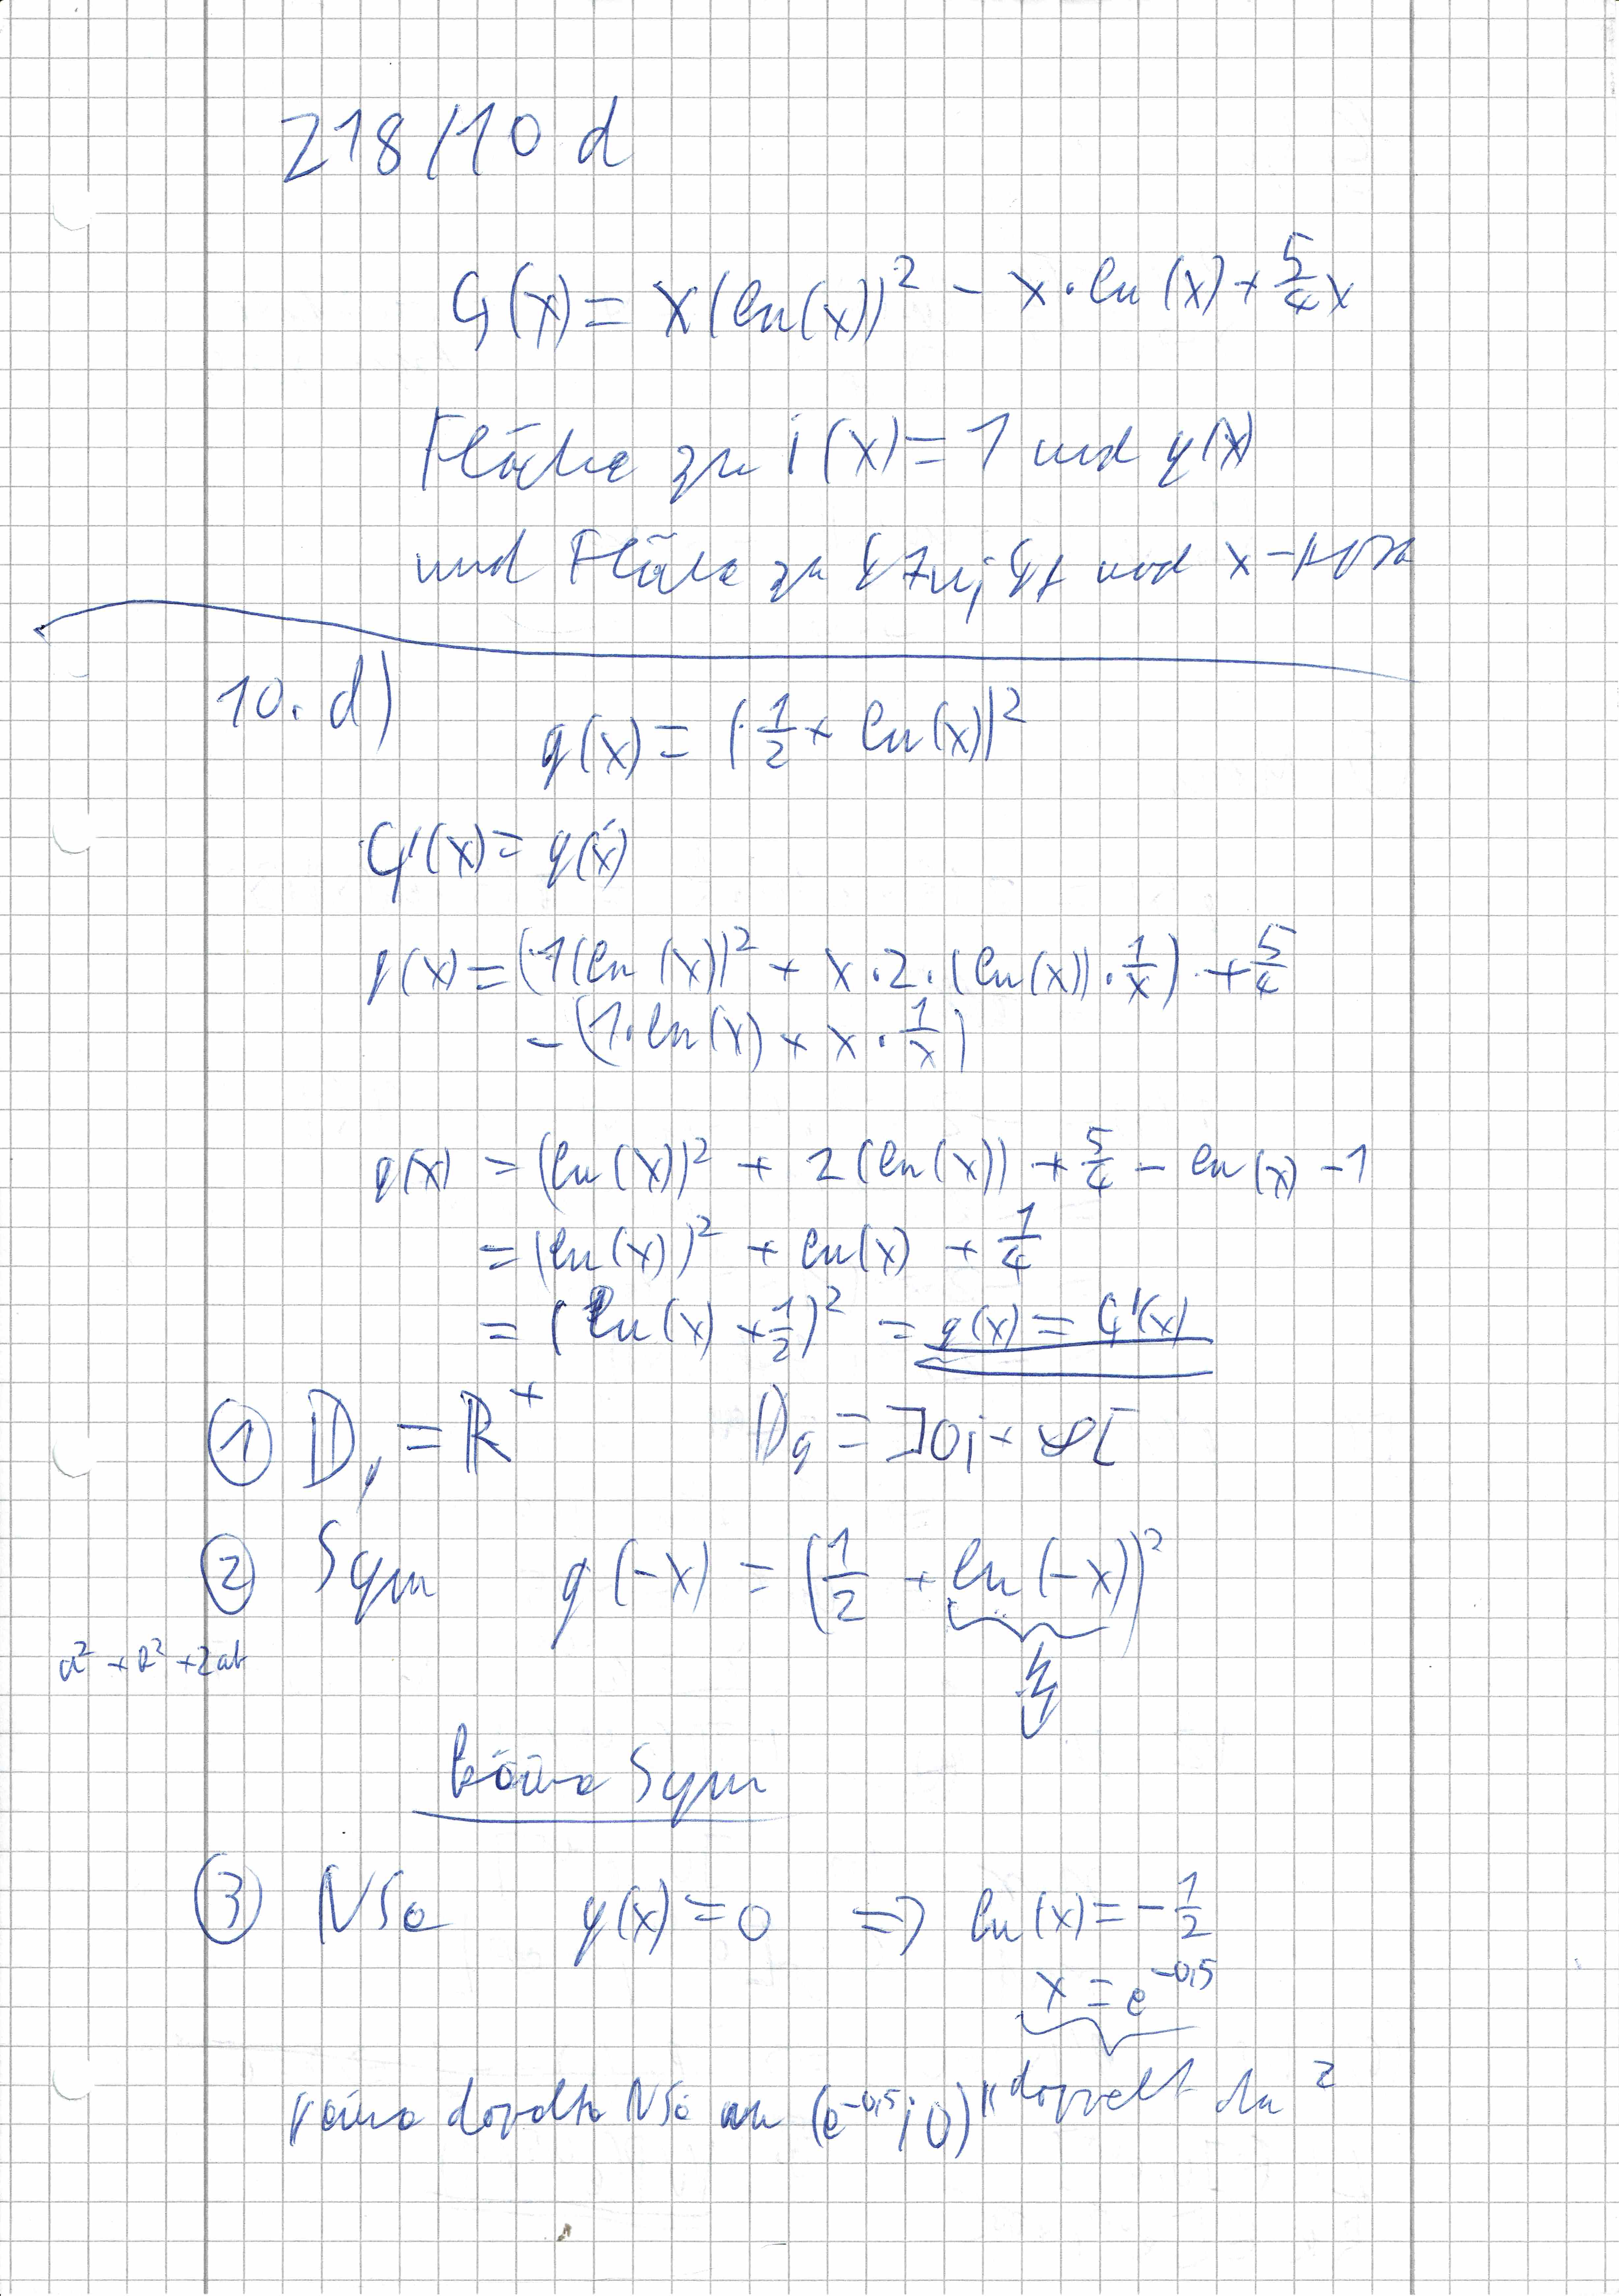 218/10 d
G(x) = x(ln(x))² - x·ln(x) + 5/4 x
Fläche zu i(x) = 1 und g(x)
und Fläche zu und x-
10. d) g(x) = (1/2 + ln(x))²
G'(x) = g(x)
g(x) = (1(ln(x))² + x·2·(ln(x))·1/x) + 5/4
- (1·ln(x) + x·1/x)
g(x) = (ln(x))² + 2(ln(x)) + 5/4 - ln(x) - 1
= (ln(x))² + ln(x) + 1/4
= (ln(x) + 1/2)² = g(x) = G'(x)
① D = ℝ⁺ Dg = ]0;+∞[
② Sym g(-x) = (1/2 + ln(-x))²
a² + b² + 2ab
keine Sym
③ NSt g(x) = 0 => ln(x) = -1/2
x = e^-0,5
doppelt da ²
eine doppelte NSt an (e^-0,5;0)